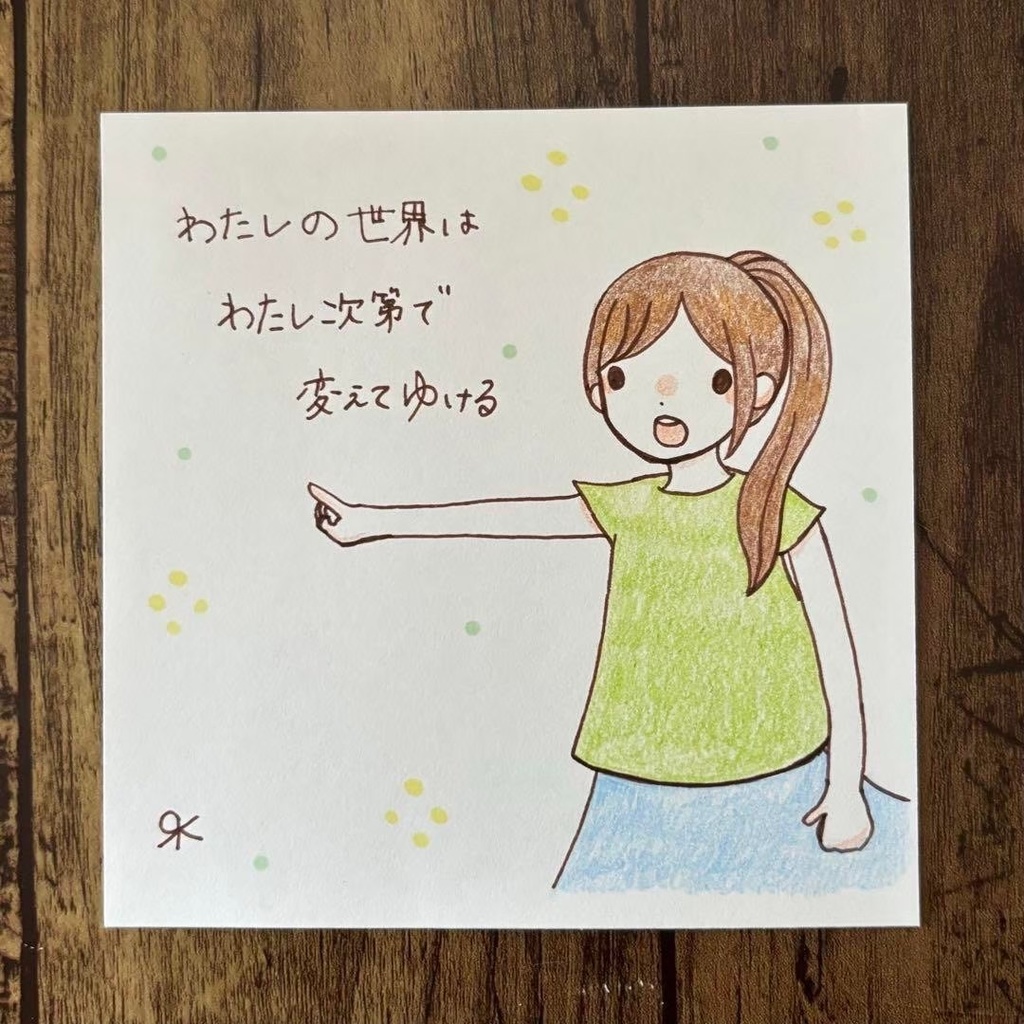 わたしの世界は
わたし次第で
変えてゆける